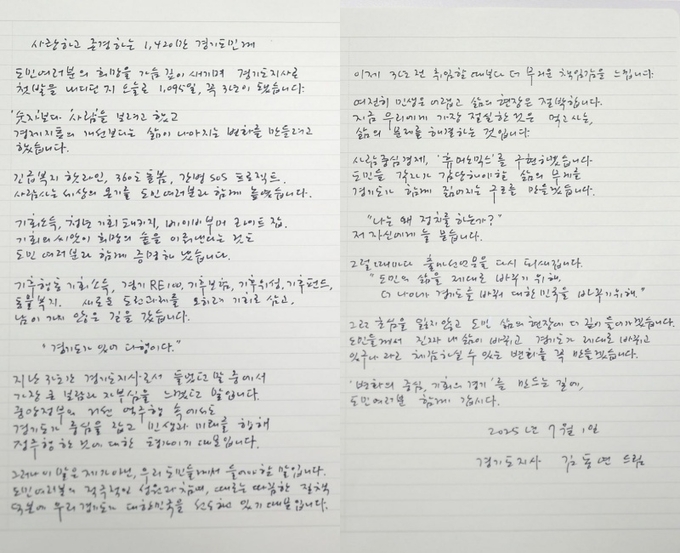 사랑하고 존경하는 1,420만 경기도민께
도민여러분의 희망을 가슴 깊이 새기며 경기도지사로
첫발을 내디딘 지 오늘로 1,095일, 꼭 3년이 됐습니다.
'숫자'보다 '사람'을 보려고 했고
경제지표의 개선보다는 삶이 나아지는 변화를 만들려고
했습니다.
긴급복지 핫라인, 360도 돌봄, 간병 SOS 프로젝트.
사람사는 세상의 온기를 도민여러분과 함께 높였습니다.
기회소득, 청년 기회 패키지, 베이비부머 라이트 잡.
기회의 씨앗이 희망의 숲을 이뤄낸다는 것도
도민 여러분과 함께 증명해 냈습니다.
기후행동 기회소득, 경기 RE100, 기후보험, 기후위성, 기후펀드,
동물복지. 새로운 도전과제를 오히려 기회로 삼고,
남이 가지 않은 길을 갔습니다.
"경기도가 있어 다행이다."
지난 3년간 경기도지사로서 들었던 말 중에서
가장 큰 보람과 자부심을 느꼈던 말입니다.
중앙정부의 거센 역주행 속에서도
경기도가 중심을 잡고 민생과 미래를 향해
정주행한 것에 대한 평가이기 때문입니다.
그러나 이 말은 제가 아닌, 우리 도민들께서 들어야 할 말입니다.
도민여러분의 적극적인 성원과 참여, 때로는 따끔한 질책
덕분에 우리 경기도가 대한민국을 선도하고 있기 때문입니다.
이제 3년 전 취임할 때보다 더 무거운 책임감을 느낍니다.
여전히 민생은 어렵고 삶의 현장은 절박합니다.
지금 우리에게 가장 절실한 것은 먹고사는,
삶의 문제를 해결하는 것입니다.
사람중심경제, '휴머노믹스'를 구현하겠습니다.
도민들 각자가 감당해야 할 삶의 무게를
경기도가 함께 짊어지는 구조를 만들겠습니다.
"나는 왜 정치를 하는가?"
저 자신에게 늘 묻습니다.
그럴 때마다 출마선언문을 다시 되새깁니다.
"도민의 삶을 제대로 바꾸기 위해,
더 나아가 경기도를 바꿔 대한민국을 바꾸기 위해."
그런 초심을 잃지 않고 도민 삶의 현장에 더 깊이 들어가겠습니다.
도민들께서 진짜 내 삶이 바뀌고 경기도가 제대로 바뀌고
있구나 라고 체감하실 수 있는 변화를 꼭 만들겠습니다.
'변화의 중심, 기회의 경기'를 만드는 길에,
도민여러분 함께 갑시다.
2025년 7월 1일
경기도지사 김동연 드림